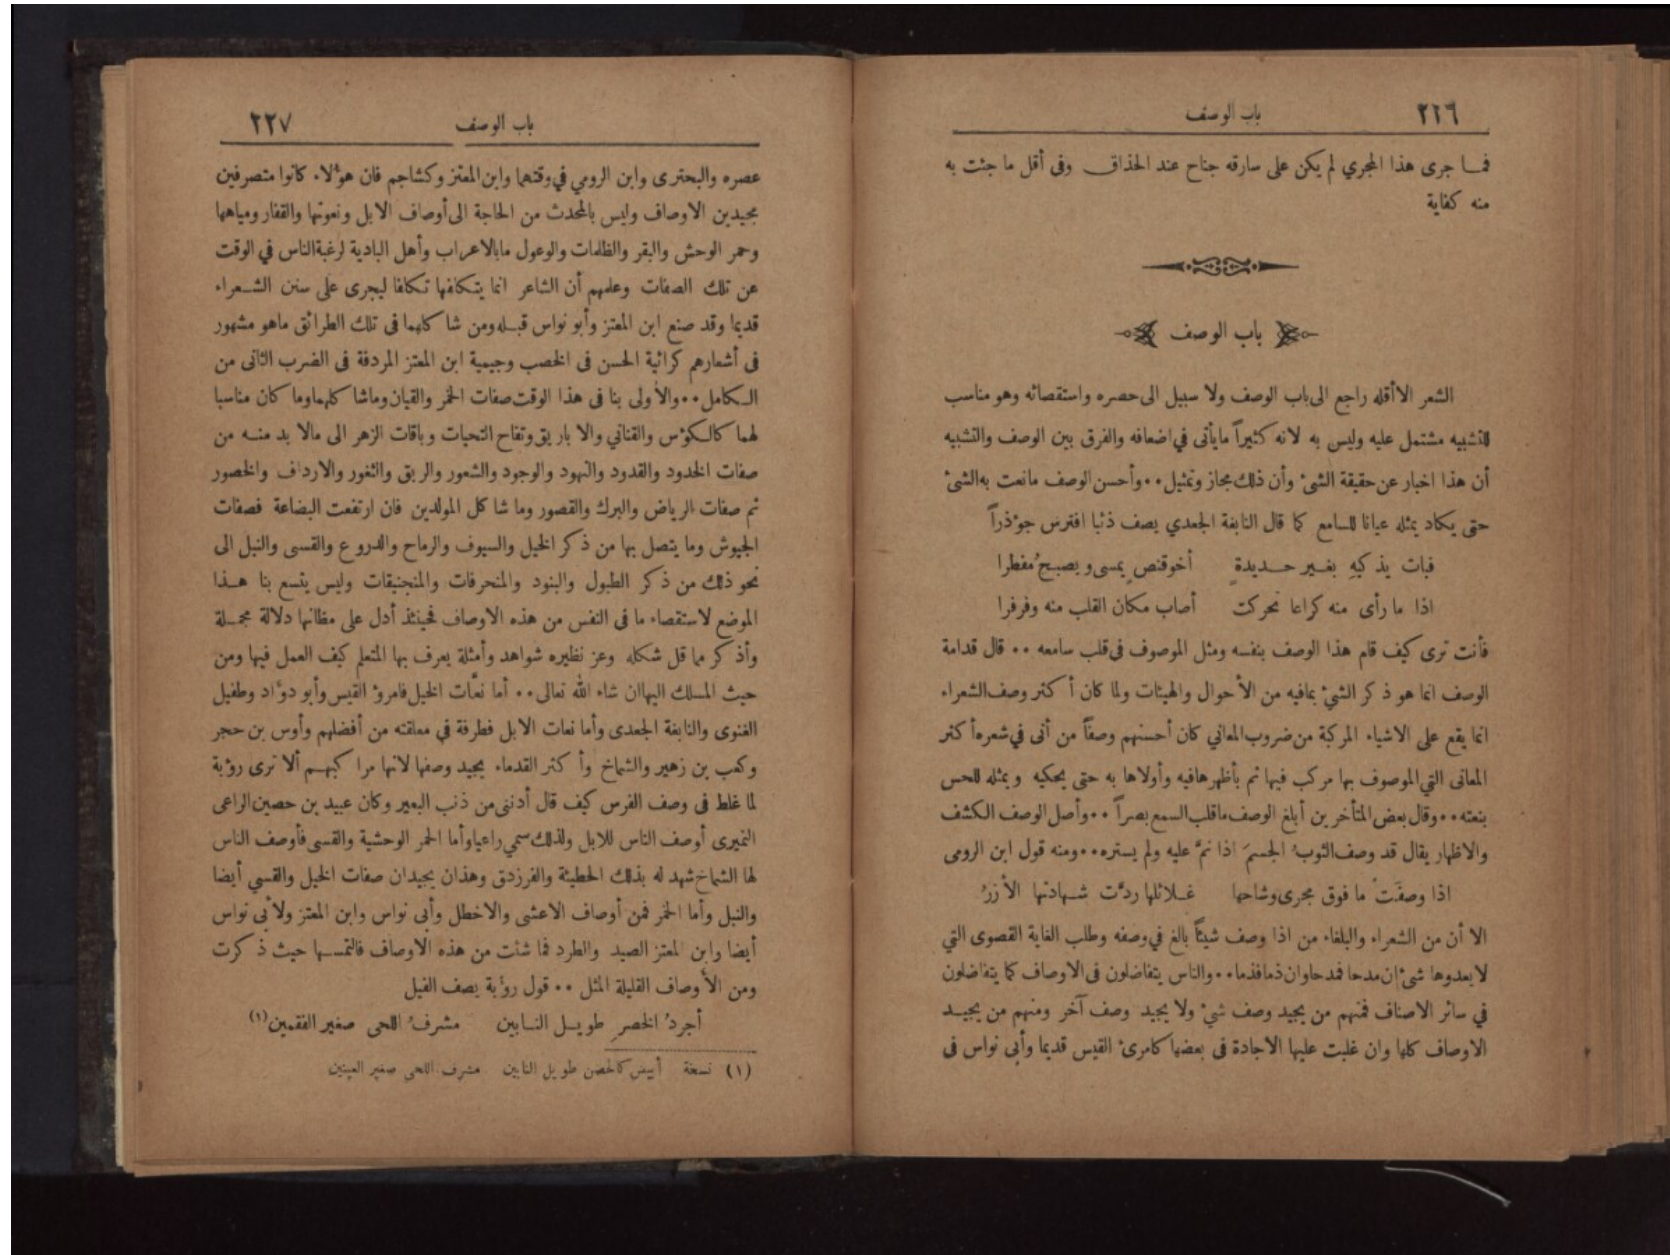 ٢٢٦
باب الوصف
فما جرى هذا المجري لم يكن على سارقه جناح عند الحذاق وفى أقل ما جئت به
منه كفاية
باب الوصف
الشعر الا أقله راجع الى باب الوصف ولا سبيل الى حصره واستقصائه وهو مناسب
للتشبيه مشتمل عليه وليس به لانه كثيراً ما يأتى في اضعافه والفرق بين الوصف والتشبيه
أن هذا اخبار عن حقيقة الشئ وأن ذلك مجاز وتمثيل ٠٠ وأحسن الوصف ما نعت به الشئ
حتى يكاد يمثله عيانا للسامع كما قال النابغة الجعدي يصف ذئبا افترس جوُذراً
فبات يذكيهِ بغير حديدةٍ أخو قنصٍ يمسى ويصبحُ مُفطرا
اذا ما رأى منه كراعا تحركت أصاب مكان القلب منه وفرفرا
فأنت ترى كيف قام هذا الوصف بنفسه ومثل الموصوف فى قلب سامعه ٠٠ قال قدامة
الوصف انما هو ذكر الشئ بما فيه من الأحوال والهيئات ولما كان أكثر وصف الشعراء
انما يقع على الاشياء المركبة من ضروب المعاني كان أحسنهم وصفاً من أتى في شعره أكثر
المعانى التي الموصوف بها مركب فيها ثم بأظهرها فيه وأولاها به حتى يحكيه ويمثله للحس
بنعته ٠٠ وقال بعض المتأخرين أبلغ الوصف ما قلب السمع بصراً ٠٠ وأصل الوصف الكشف
والاظهار يقال قد وصف الثوبُ الجسمَ اذا نمَّ عليه ولم يستره ٠٠ ومنه قول ابن الرومى
اذا وصفَتْ ما فوق مجرى وشاحها غلائلها ردَّت شهادتها الأزرُ
الا أن من الشعراء والبلغاء من اذا وصف شيئاً بالغ في وصفه وطلب الغاية القصوى التي
لا يعدوها شئ ان مدحا فمدحا وان ذما فذما ٠٠ والناس يتفاضلون فى الاوصاف كما يتفاضلون
في سائر الاصناف فمنهم من يجيد وصف شئ ولا يجيد وصف آخر ومنهم من يجيد
الاوصاف كلها وان غلبت عليها الاجادة فى بعضها كامرئ القيس قديما وأبى نواس فى
باب الوصف
٢٢٧
عصره والبحترى وابن الرومي في وقتهما وابن المعتز وكشاجم فان هؤلاء كانوا متصرفين
مجيدين الاوصاف وليس بالمحدث من الحاجة الى أوصاف الابل ونعوتها والقفار ومياهها
وحمر الوحش والبقر والظلمات والوعول ما بالاعراب وأهل البادية لرغبة الناس في الوقت
عن تلك الصفات وعلمهم أن الشاعر انما يتكلفها تكلفا ليجرى على سنن الشعراء
قديما وقد صنع ابن المعتز وأبو نواس قبله ومن شاكلهما فى تلك الطرائق ما هو مشهور
فى أشعارهم كرائية الحسن فى الخصب وجيمية ابن المعتز المردفة فى الضرب الثانى من
الكامل ٠٠ والأولى بنا فى هذا الوقت صفات الخمر والقيان وما شاكلهما وما كان مناسبا
لهما كالكؤس والقناني والاباريق وتفاح التحيات وباقات الزهر الى مالا بد منه من
صفات الخدود والقدود والنهود والوجود والشعور والريق والثغور والارداف والخصور
ثم صفات الرياض والبرك والقصور وما شاكل المولدين فان ارتفعت البضاعة فصفات
الجيوش وما يتصل بها من ذكر الخيل والسيوف والرماح والدروع والقسى والنبل الى
نحو ذلك من ذكر الطبول والبنود والمنحرفات والمنجنيقات وليس يتسع بنا هذا
الموضع لاستقصاء ما فى النفس من هذه الاوصاف فحينئذ أدل على مظانها دلالة مجملة
وأذكر مما قل شكله وعز نظيره شواهد وأمثلة يعرف بها المتعلم كيف العمل فيها ومن
حيث المسلك اليها ان شاء الله تعالى ٠٠ أما نعَّات الخيل فامرؤ القيس وأبو دؤاد وطفيل
الغنوى والنابغة الجعدى وأما نعات الابل فطرفة في معلقته من أفضلهم وأوس بن حجر
وكعب بن زهير والشماخ وأكثر القدماء يجيد وصفها لانها مراكبهم ألا ترى رؤبة
لما غلط فى وصف الفرس كيف قال أدننى من ذنب البعير وكان عبيد بن حصين الراعى
النميرى أوصف الناس للابل ولذلك سمي راعيا وأما الحمر الوحشية والقسى فأوصف الناس
لها الشماخ شهد له بذلك الحطيئة والفرزدق وهذان يجيدان صفات الخيل والقسي أيضا
والنبل وأما الخمر فمن أوصاف الاعشى والاخطل وأبى نواس وابن المعتز ولأبى نواس
أيضا وابن المعتز الصيد والطرد فما شئت من هذه الاوصاف فالتمسها حيث ذكرت
ومن الأوصاف القليلة المثل ٠٠ قول رؤبة يصف الفيل
أجردُ الخصرِ طويل النابين مشرفُ اللحى صغير الفقمين (١)
(١) نسخة أبيض كالحضن طويل النابين مشرف اللحى صغير العينين